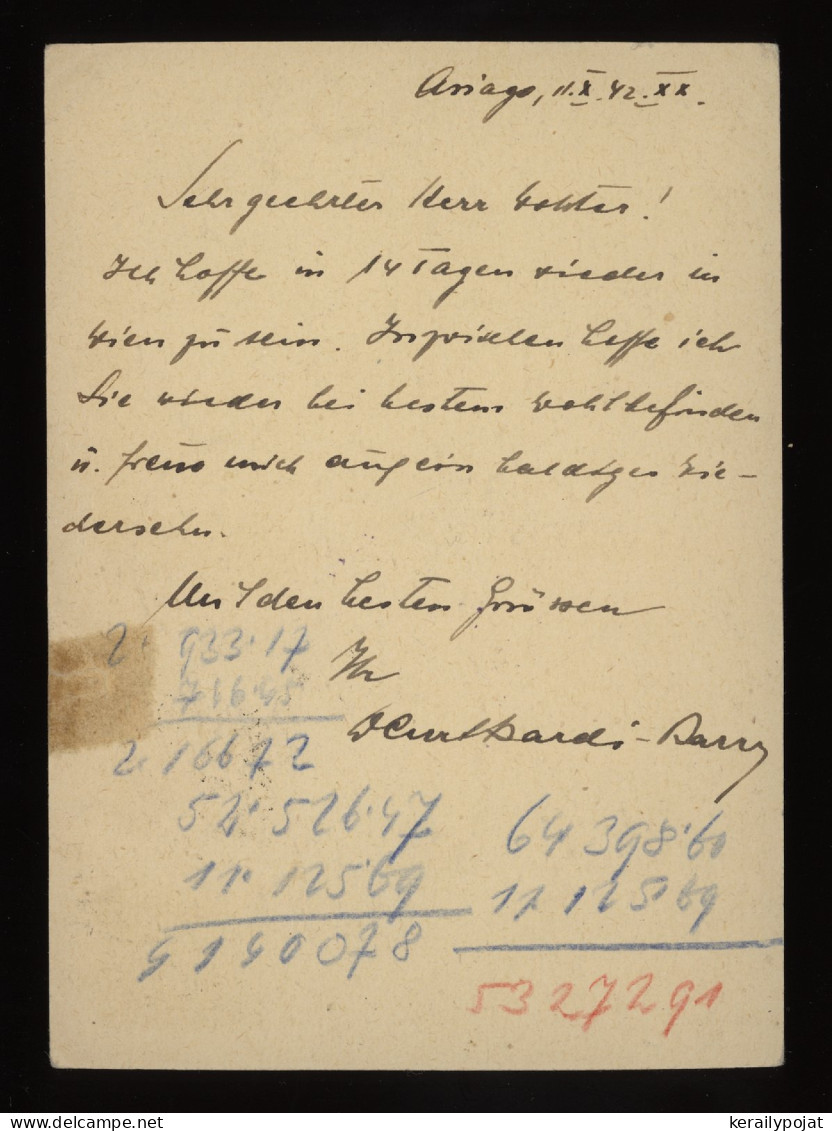 Asiago, 11.X.42.XX.
Sehr geehrter Herr
Ich hoffe in 14 Tagen wieder in
Wien zu sein. Inzwischen hoffe ich
Sie wieder bei bestem Wohlbefinden
u. freue mich auf ein baldiges Wie-
dersehn.
Mit den besten Grüssen
Ihr
2. 933.17
716.45
2.16672
52.526.47
11.125.69
4140078
64398.60
11.125.69
5327291
www.delcampe.net
kerailypojat